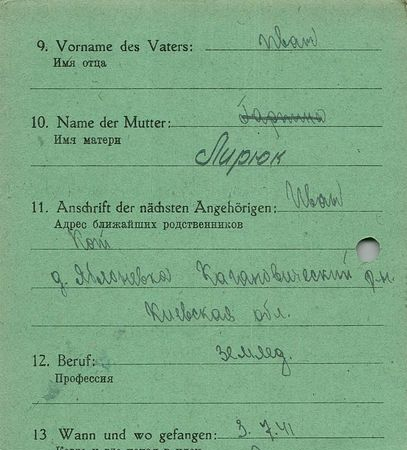 9. Vorname des Vaters: Иван
Имя отца
10. Name der Mutter: Гарпина
Имя матери
Лирюк
11. Anschrift der nächsten Angehörigen: Иван
Адрес ближайших родственников
Кот
д. Яблоневка Кагановический р-н.
Киевская обл.
12. Beruf: землед.
Профессия
13 Wann und wo gefangen: 3. 7. 41